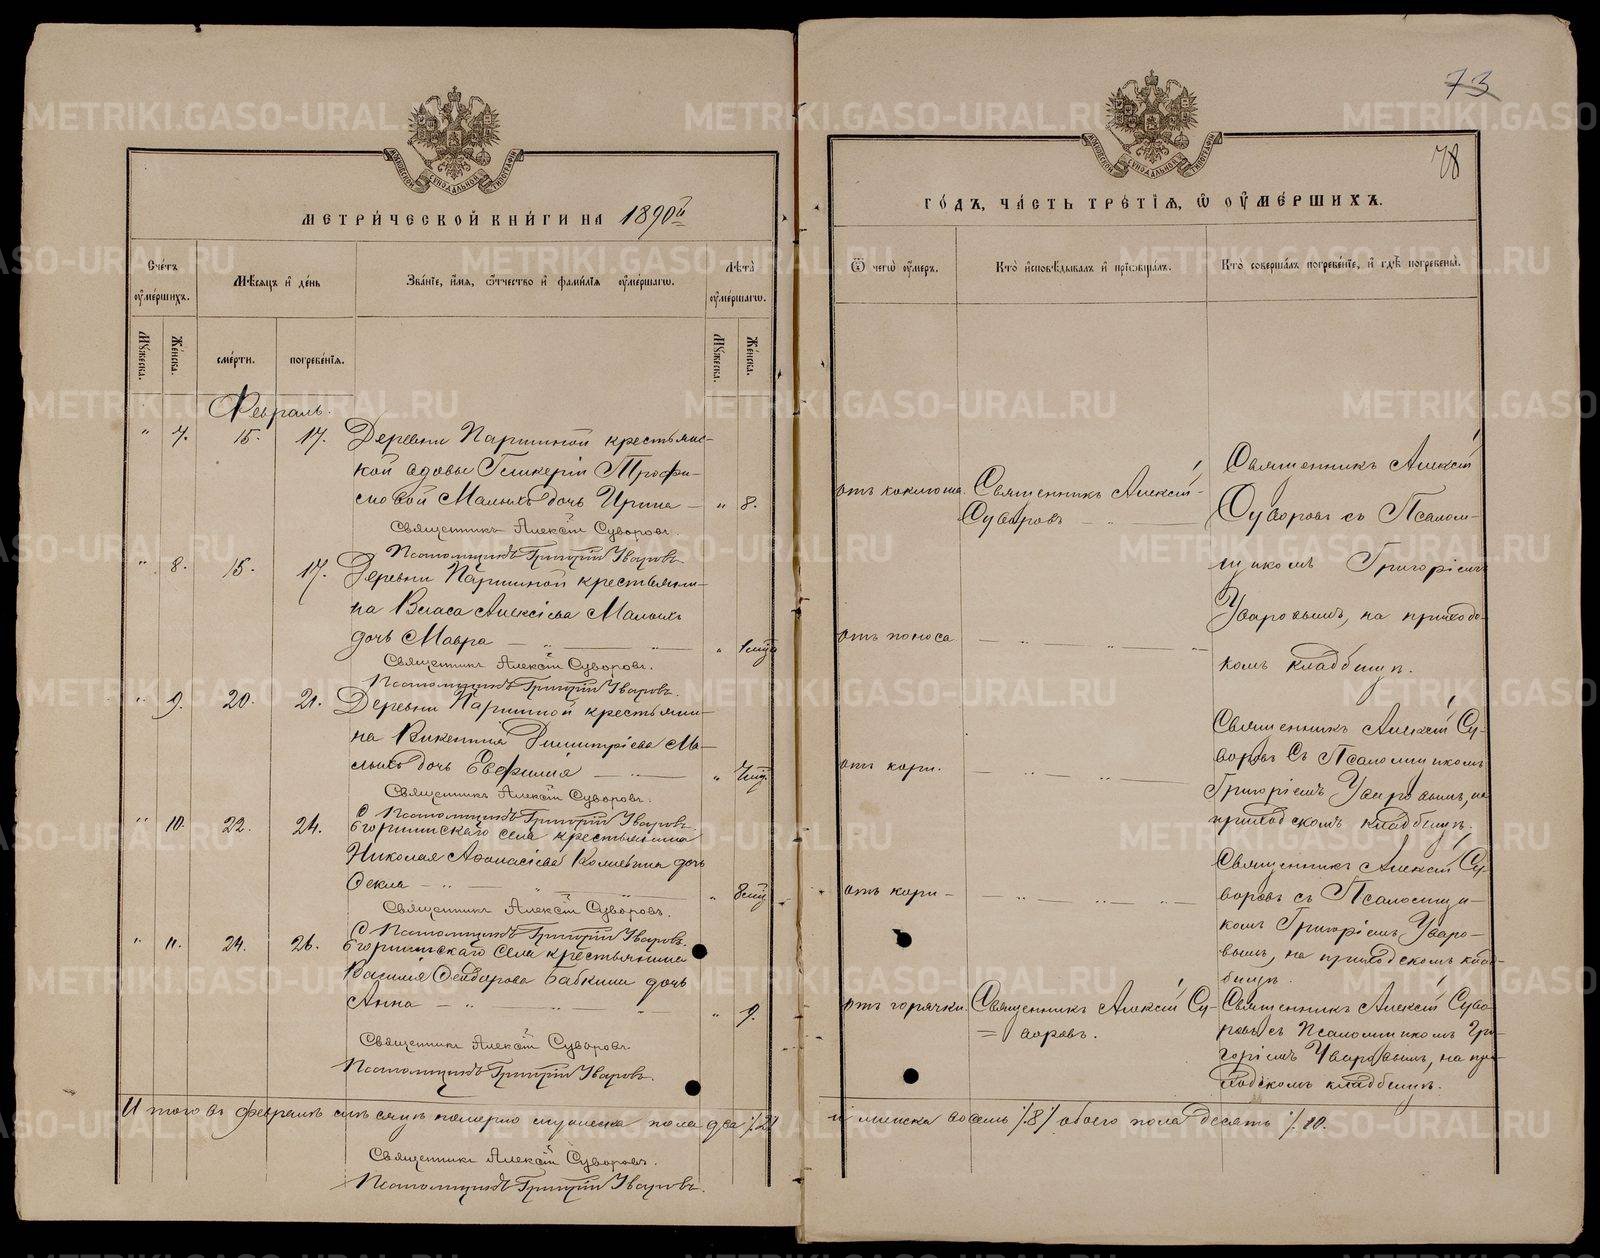 МЕТРИЧЕСКОЙ КНИГИ НА 1890й
Счетъ оумершихъ.
Мужеска.
Женска.
Мѣсяцъ и день
смерти.
погребенія.
Званіе, имя, отчество и фамилія оумершагw.
Лѣта оумершагw.
Мужеска.
Женска.
Февраль.
" 7. 15. 17. Деревни Паршиной крестьянс-
кой вдовы Гликеріи Трофи-
мовой Малыхъ дочь Ирина — " 8.
Священникъ Алексій Суворовъ.
Псаломщикъ Григорій Уваровъ.
" 8. 15. 17. Деревни Паршиной крестьяни-
на Власа Алексіева Малыхъ
дочь Мавра — " —
Священникъ Алексій Суворовъ.
Псаломщикъ Григорій Уваровъ.
" 9. 20. 21. Деревни Паршиной крестьяни-
на Викентія Димитріева Ма-
лыхъ дочь Евфимія — " —
Священникъ Алексій Суворовъ.
Псаломщикъ Григорій Уваровъ.
" 10. 22. 24. Егоршинскаго села крестьянина
Николая Аѳонасіева дочь
Ѳекла — " —
Священникъ Алексій Суворовъ.
Псаломщикъ Григорій Уваровъ.
" 11. 24. 26. Егоршинскаго села крестьянина
Василія Ѳеодорова Бабкина дочь
Анна — " — " 9.
Священникъ Алексій Суворовъ.
Псаломщикъ Григорій Уваровъ.
Итого въ февралѣ мѣсяцѣ померло мужеска пола два /2/
Священникъ Алексій Суворовъ.
Псаломщикъ Григорій Уваровъ.
73
78
ГОДЪ, ЧАСТЬ ТРЕТІЯ, Ѿ ОУМЕРШИХЪ.
Ѿ чегw оумеръ.
Кто исповѣдывалъ и прiwбщалъ.
Кто совершалъ погребеніе, и гдѣ погребены.
отъ коклюша.
Священникъ Алексій
Суворовъ
Священникъ Алексій
Суворовъ съ Псалом-
щикомъ Григоріемъ
Уваровымъ, на приходс-
комъ кладбищѣ.
отъ поноса
отъ кори.
Священникъ Алексій Су-
воровъ съ Псаломщикомъ
Григоріемъ Уваровымъ, на
приходскомъ кладбищѣ.
отъ кори —
Священникъ Алексій Су-
воровъ съ Псаломщи-
комъ Григоріемъ Уваро-
вымъ, на приходскомъ клад-
бищѣ.
отъ горячки.
Священникъ Алексій Су-
= воровъ.
Священникъ Алексій Суво-
ровъ съ Псаломщикомъ Гри-
горіемъ Уваровымъ, на при-
ходскомъ кладбищѣ.
и женска восемь /8/ обоего пола десять /10.
METRIKI.GASO-URAL.RU